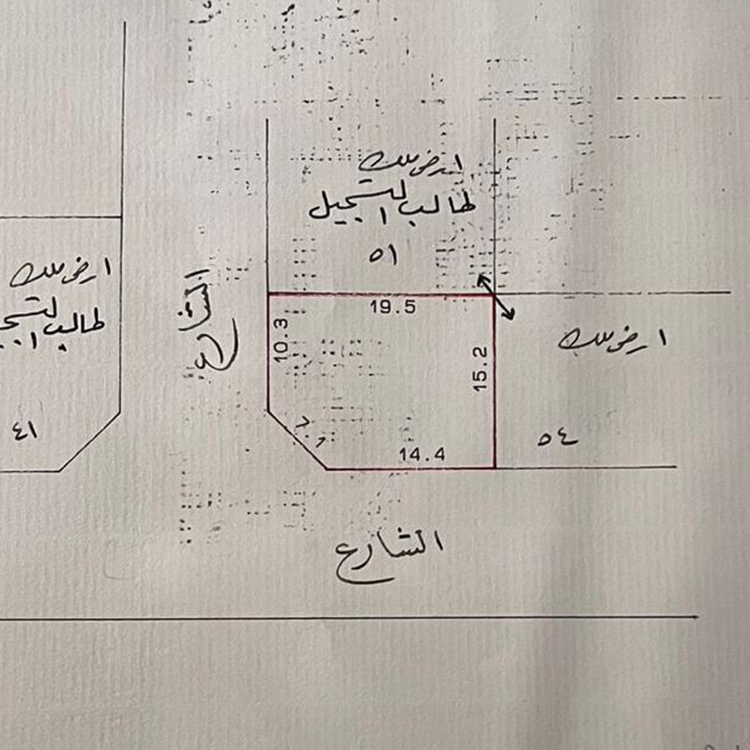 ارض ملك
طالب التسجيل
٥١
ارض ملك
طالب التسجـ
٤١
الشارع
19.5
10.3
15.2
7.1
14.4
ارض ملك
٥٤
الشارع